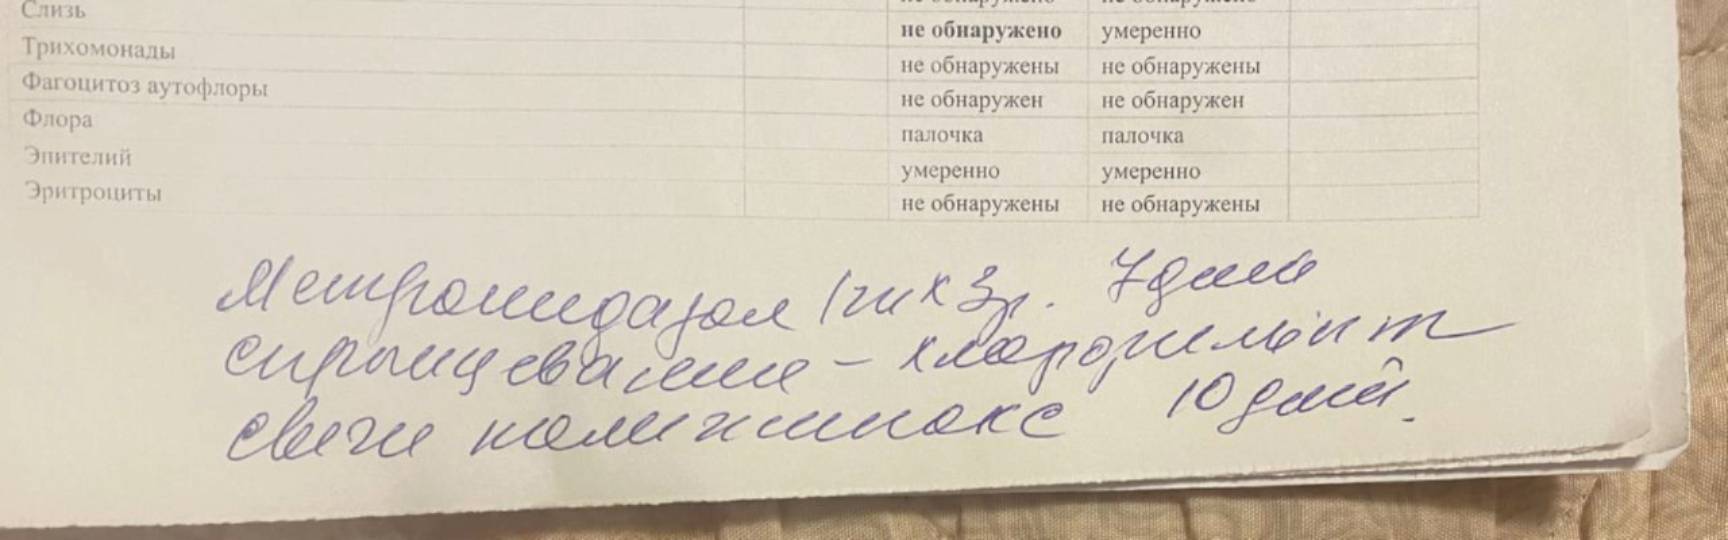 Слизь не обнаружено умеренно
Трихомонады не обнаружены не обнаружены
Фагоцитоз аутофлоры не обнаружен не обнаружен
Флора палочка палочка
Эпителий умеренно умеренно
Эритроциты не обнаружены не обнаружены
Метронидазол 1т х 3р. 7 дней
спринцевание -
свечи полижинакс 10 дней.